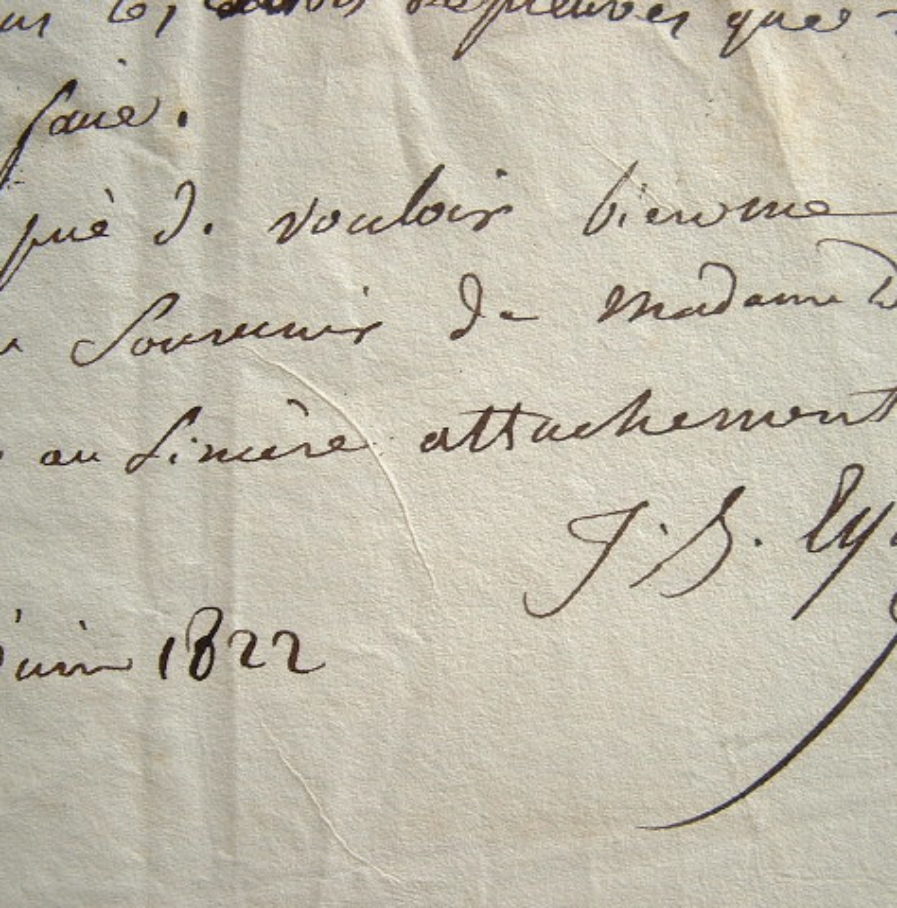 les envois d'épreuves que
faire.
prie d. vouloir bien me
souvenir de Madame
au sincère attachement
J. B. Ey
juin 1822